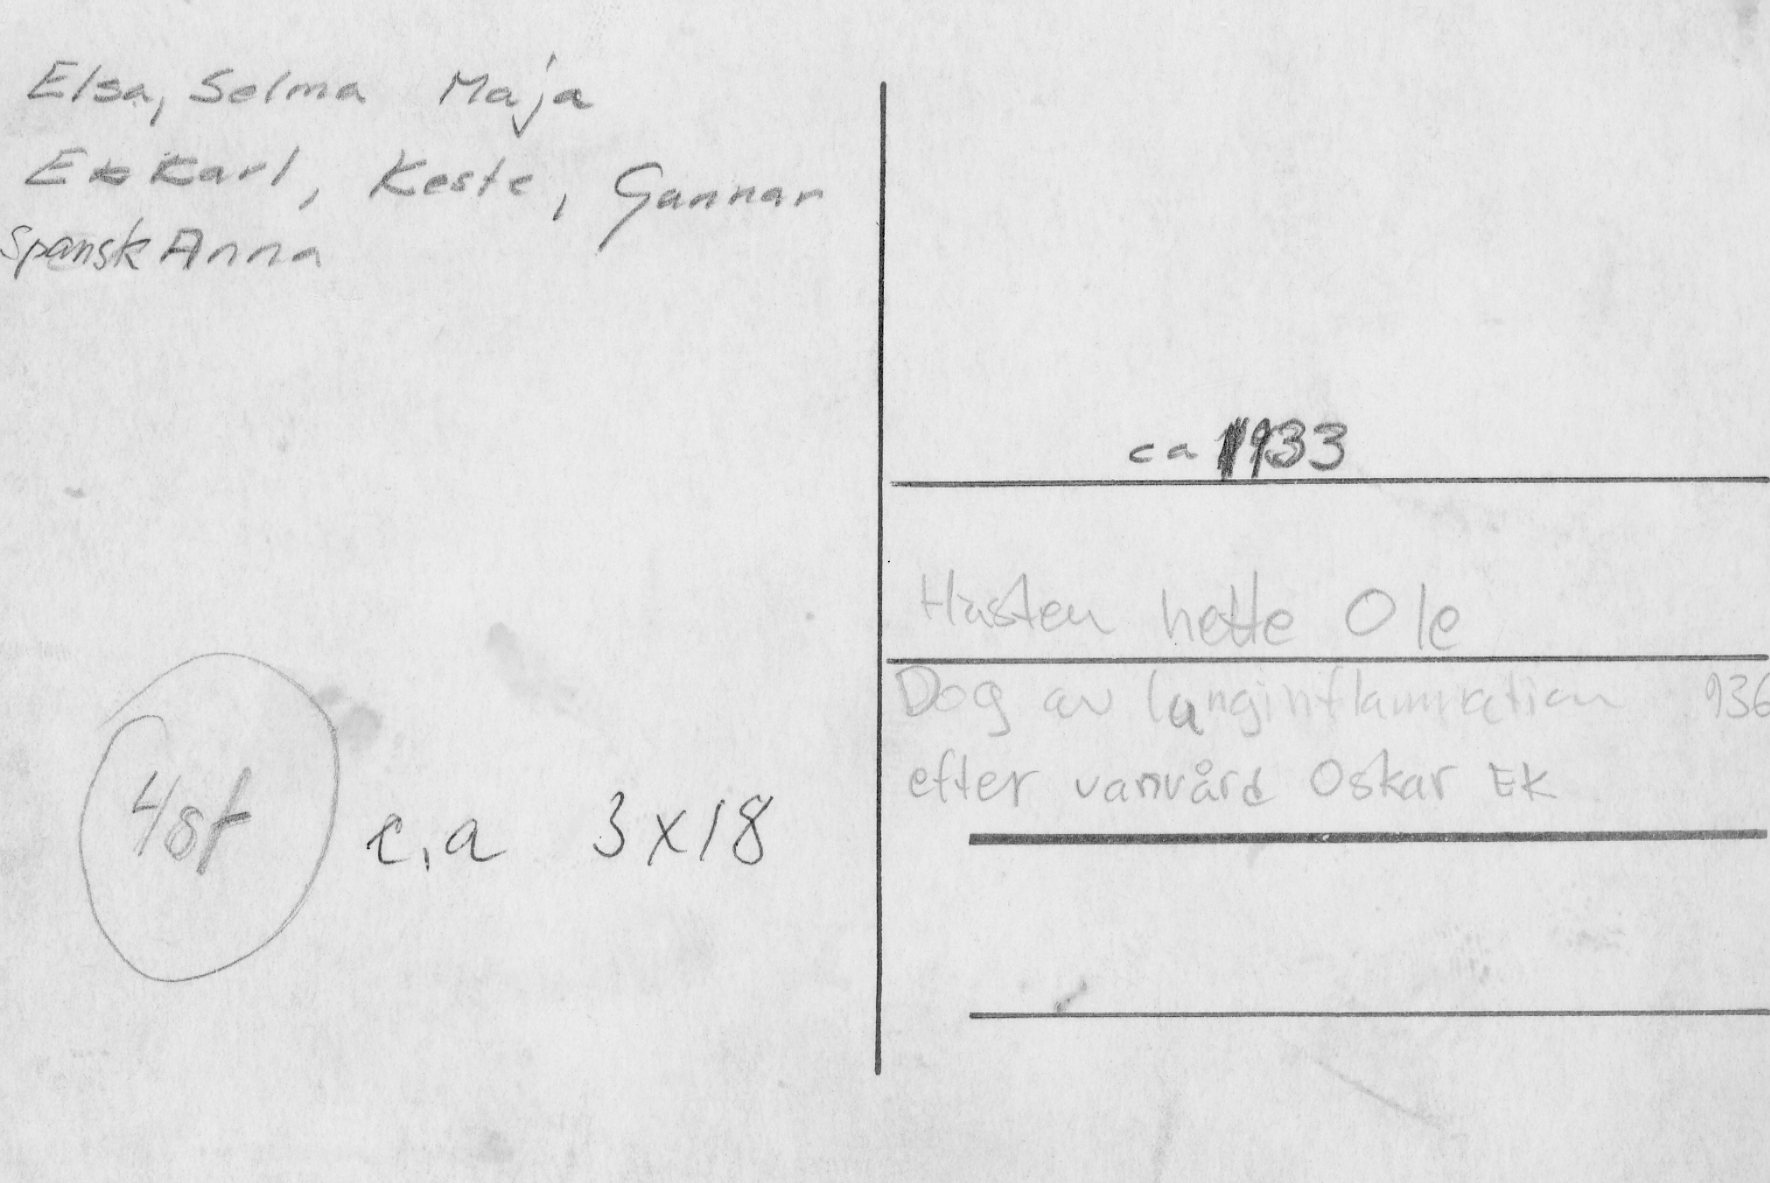 Elsa, Selma Maja
Ek Karl, Keste, Gunnar
Spansk Anna
4 st c,a 3x18
ca 1933
Hästen hette Ole
Dog av lunginflammation 936
efter vanvård Oskar Ek